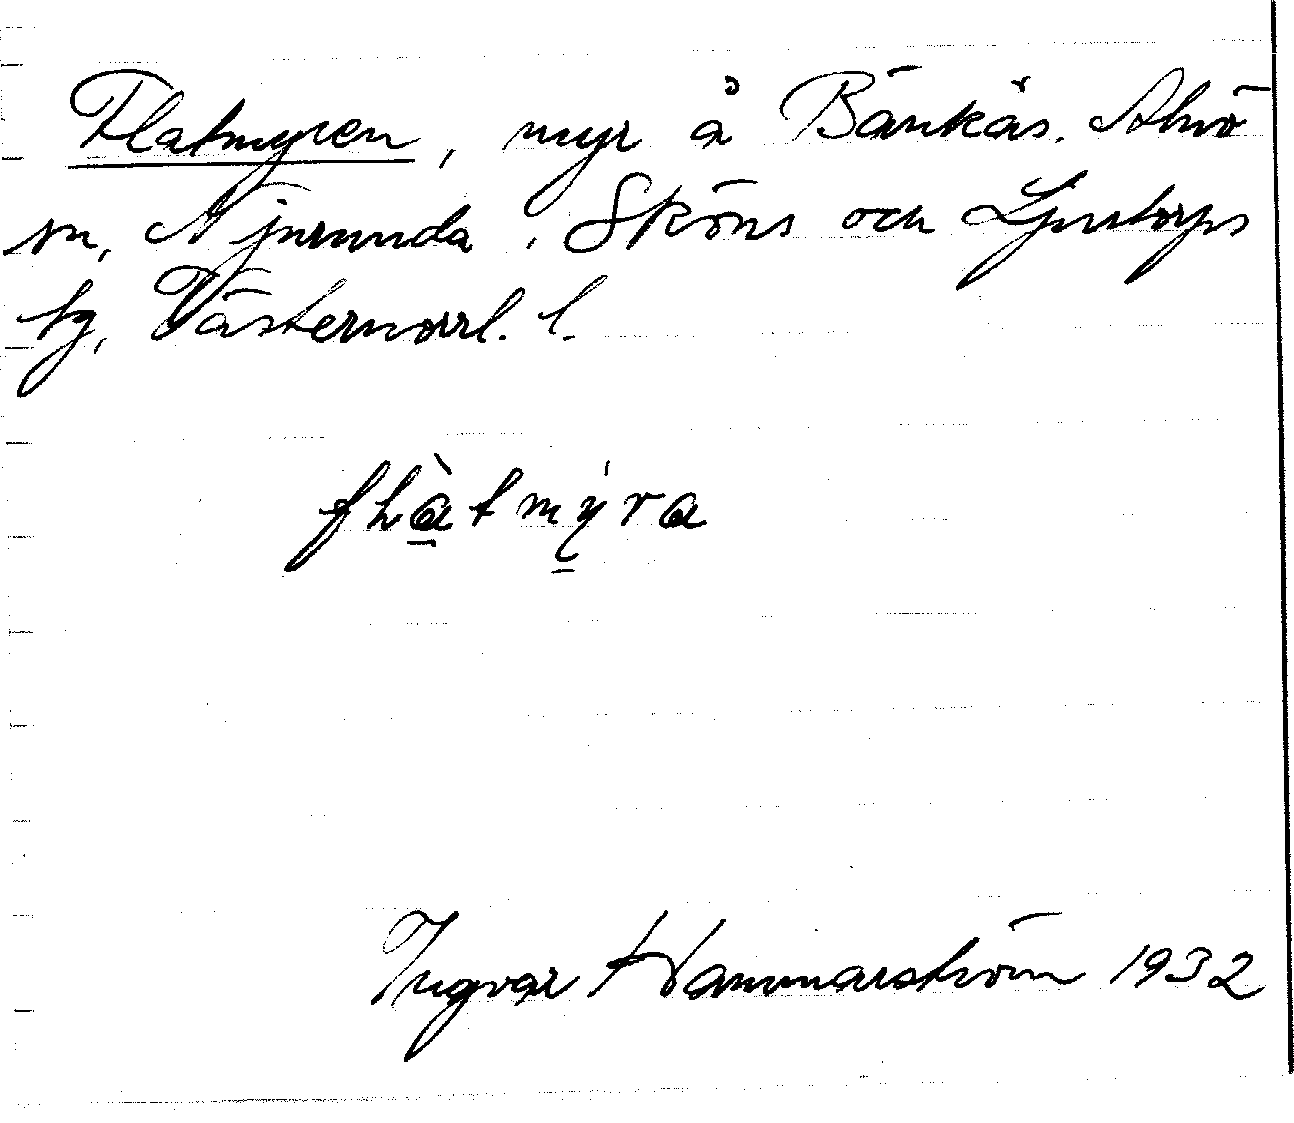 Flatmyren, myr å Bänkås. Alnö
sn, Njurunda, Sköns och Ljustorps
tg, Västernorrl. l.
fLàtmýra
Ingvar Hammarström 1932